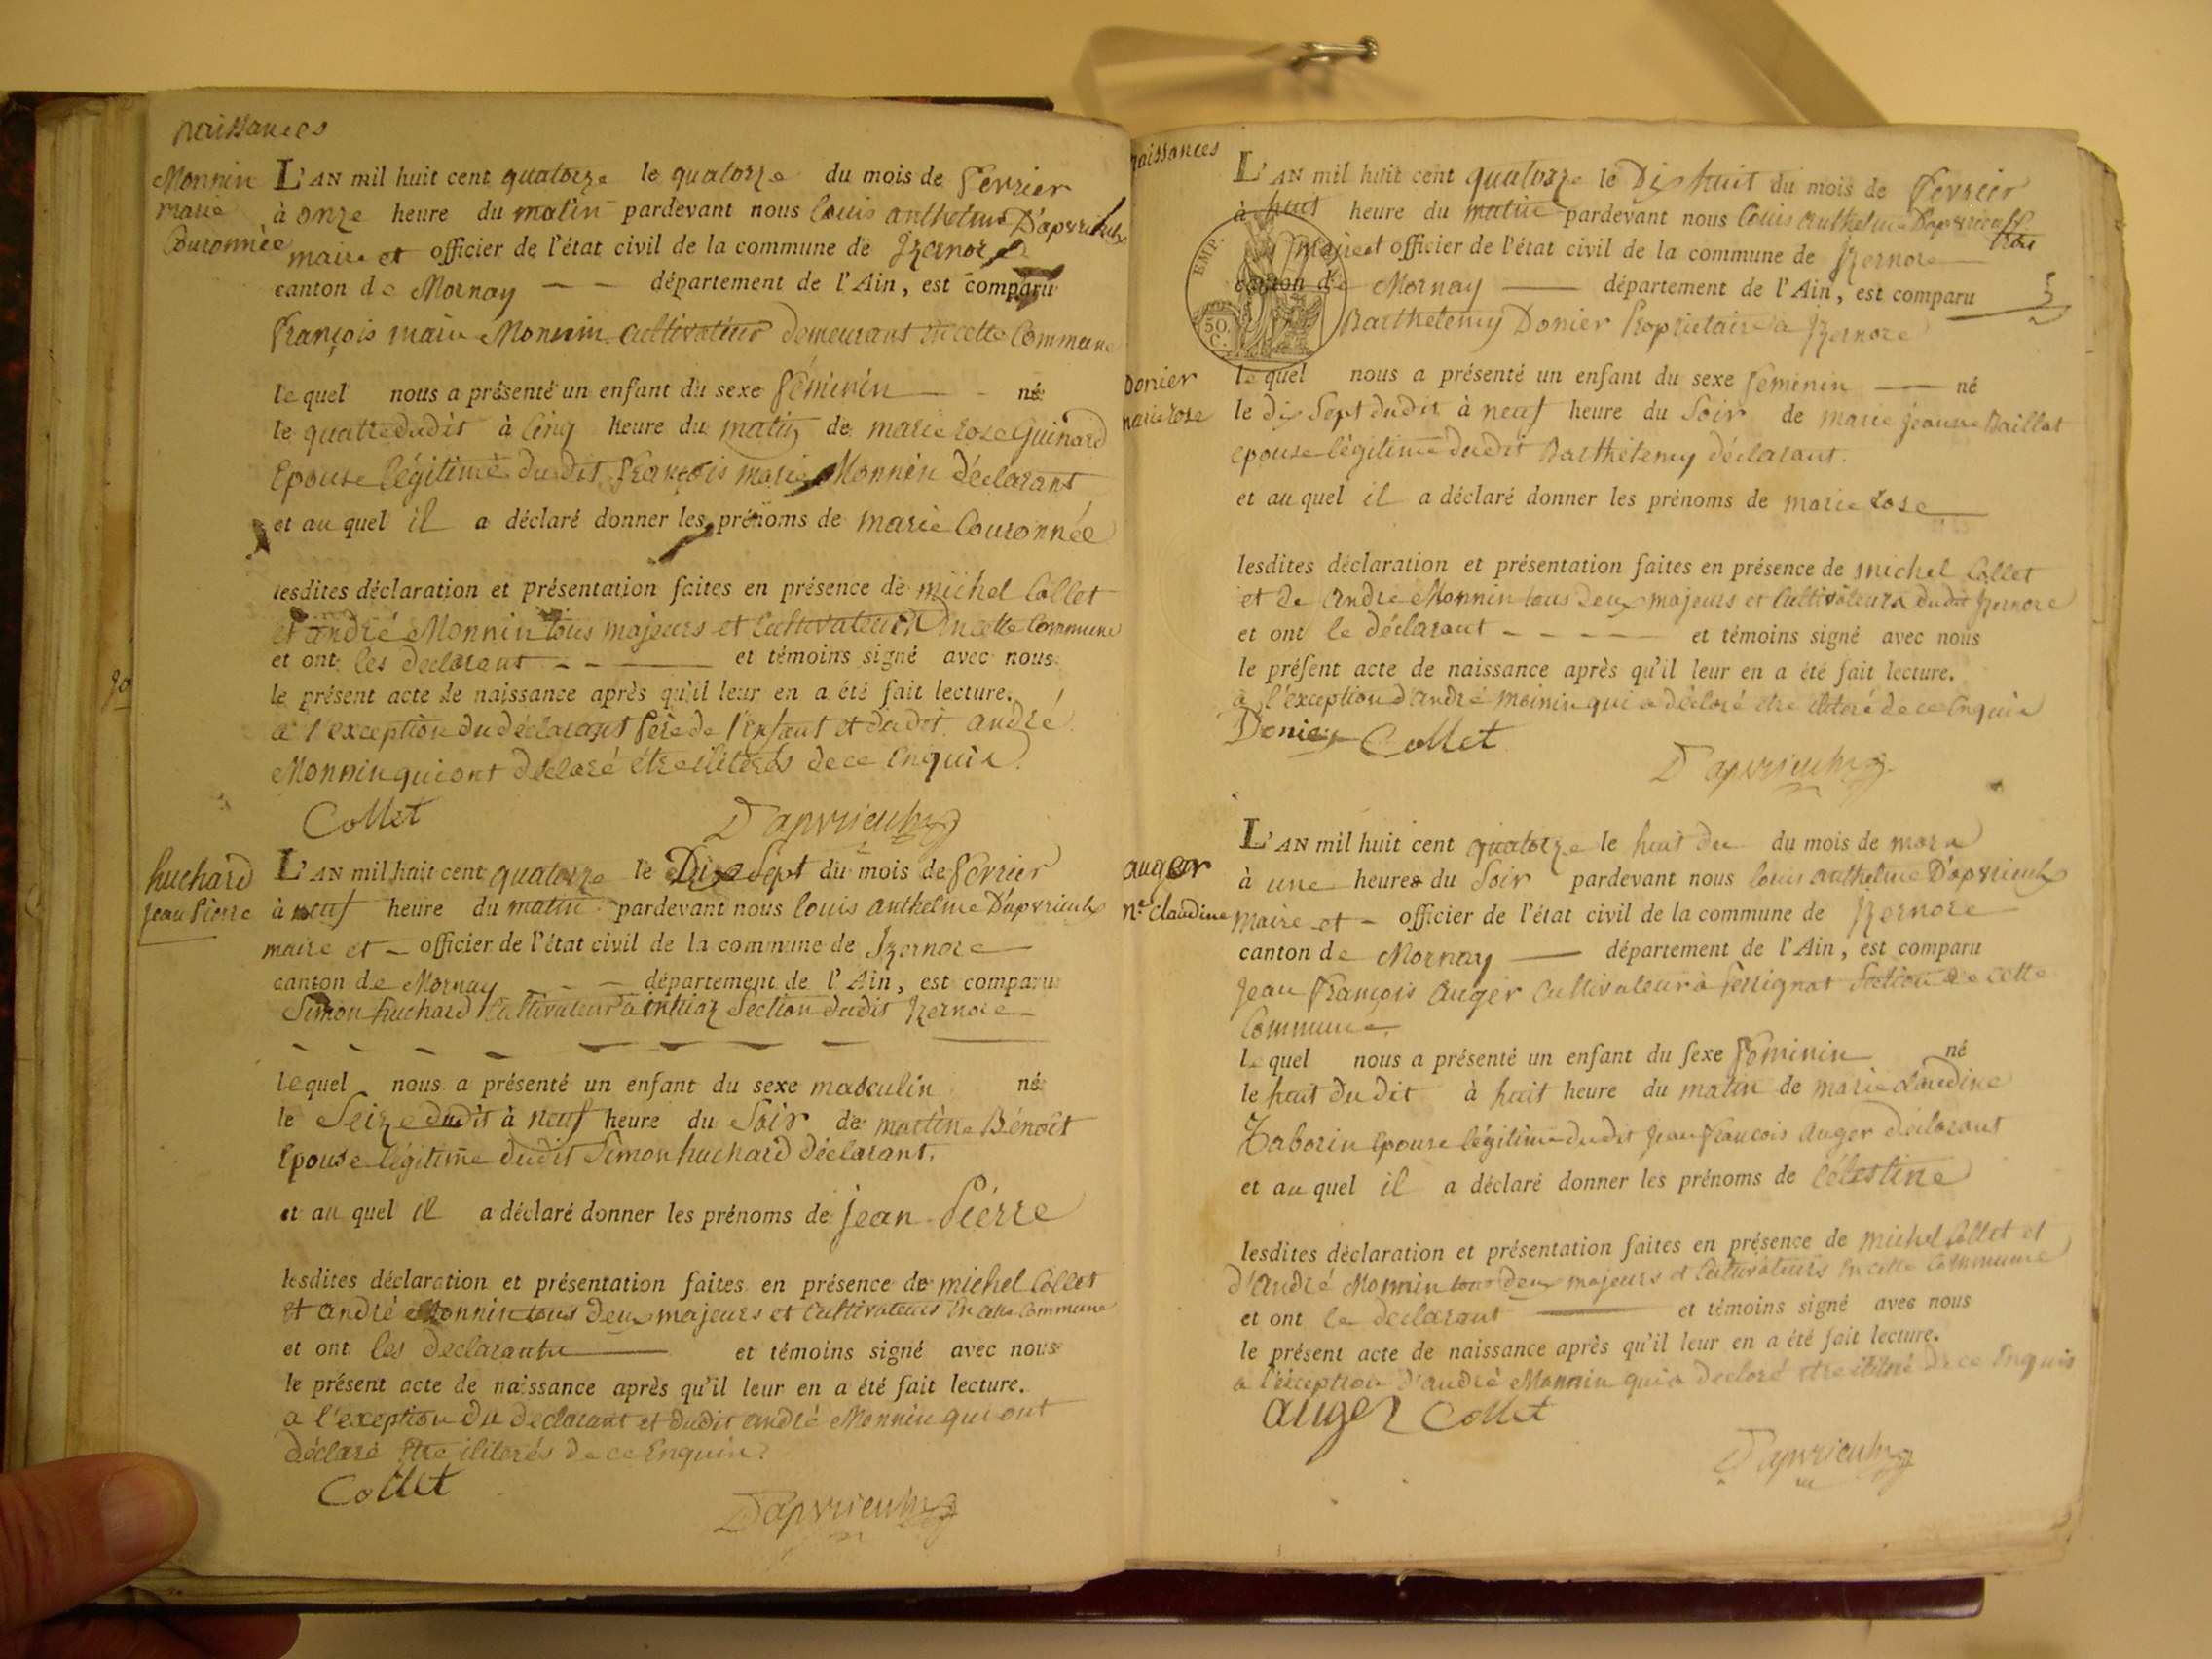 naissances
Monnin
marie
Couronnée
L'AN mil huit cent quatorze le quatorze du mois de fevrier
à onze heure du matin pardevant nous Louis anthelme D'apvrieulx
maire et officier de l'état civil de la commune de Izernore
canton de Mornay département de l'Ain, est comparu
François marie Monnin cultivateur demeurant en cette Commune
lequel nous a présenté un enfant du sexe féminin né
le quatre dudit à cinq heure du matin de marie rose Guinard
Epouse légitime dudit François marie Monnin déclarant
et au quel il a déclaré donner les prénoms de marie Couronnée
lesdites déclaration et présentation faites en présence de michel Collet
et andré Monnin tous majeurs et Cultivateurs en cette Commune
et ont les declarant et témoins signé avec nous
le présent acte de naissance après qu'il leur en a été fait lecture.
a l'exception du déclarant père de l'enfant et dudit andré
Monnin qui ont déclaré être iliterés de ce Enquis
Collet D'apvrieulx
huchard
jean Pierre
L'AN mil huit cent quatorze le Dix Sept du mois de fevrier
à neuf heure du matin pardevant nous Louis anthelme D'apvrieulx
maire et officier de l'état civil de la commune de Izernore
canton de Mornay département de l'Ain, est comparu
Simon huchard Cultivateur à intriaz Section dudit Izernore
lequel nous a présenté un enfant du sexe masculin né
le Seize dudit à neuf heure du Soir de martine Bénoit
Epouse légitime dudit Simon huchard Déclarant.
et au quel il a déclaré donner les prénoms de jean Pierre
lesdites déclaration et présentation faites en présence de michel Collet
et andré Monnin tous deux majeurs et cultivateurs en cette Commune
et ont les declarants et témoins signé avec nous
le présent acte de naissance après qu'il leur en a été fait lecture.
a l'exception du declarant et dudit andré Monnin qui ont
déclaré être iliterés de ce Enquis
Collet D'apvrieulx
90
naissances
L'AN mil huit cent quatorze le Dix huit du mois de fevrier
à huit heure du matin pardevant nous Louis anthelme D'apvrieulx
maire et officier de l'état civil de la commune de Izernore
canton de Mornay département de l'Ain, est comparu
Barthelemy Donier Proprietaire à Izernore
EMP.
50
C.
Donier
marie rose
le quel nous a présenté un enfant du sexe feminin né
le dix Sept dudit à neuf heure du Soir de marie jeanne Baillat
epouse légitime dudit Barthelemy déclarant.
et au quel il a déclaré donner les prénoms de marie rose
lesdites déclaration et présentation faites en présence de michel Collet
et de andré Monnin tous deux majeurs et Cultivateurs dudit Izernore
et ont le déclarant et témoins signé avec nous
le présent acte de naissance après qu'il leur en a été fait lecture.
a l'exception d'andré monnin qui a déclaré etre iliteré de ce Enquis
Donier Collet
D'apvrieulx
auger
ne Claudine
L'AN mil huit cent quatorze le huit du mois de mars
à une heure du Soir pardevant nous Louis anthelme D'apvrieulx
maire et officier de l'état civil de la commune de Izernore
canton de Mornay département de l'Ain, est comparu
jean François auger Cultivateur à Perrignat Section de cette
Commune.
le quel nous a présenté un enfant du sexe feminin né
le huit du dit à huit heure du matin de marie Claudine
Taborin Epouse légitime dudit jean François auger déclarant
et au quel il a déclaré donner les prénoms de Célestine
lesdites déclaration et présentation faites en présence de michel Collet et
d'andré Monnin tous deux majeurs et Cultivateurs en cette Commune
et ont le declarant et témoins signé avec nous
le présent acte de naissance après qu'il leur en a été fait lecture.
a l'exception d'andré Monnin qui a declaré etre iliteré de ce Enquis
auger Collet
D'apvrieulx